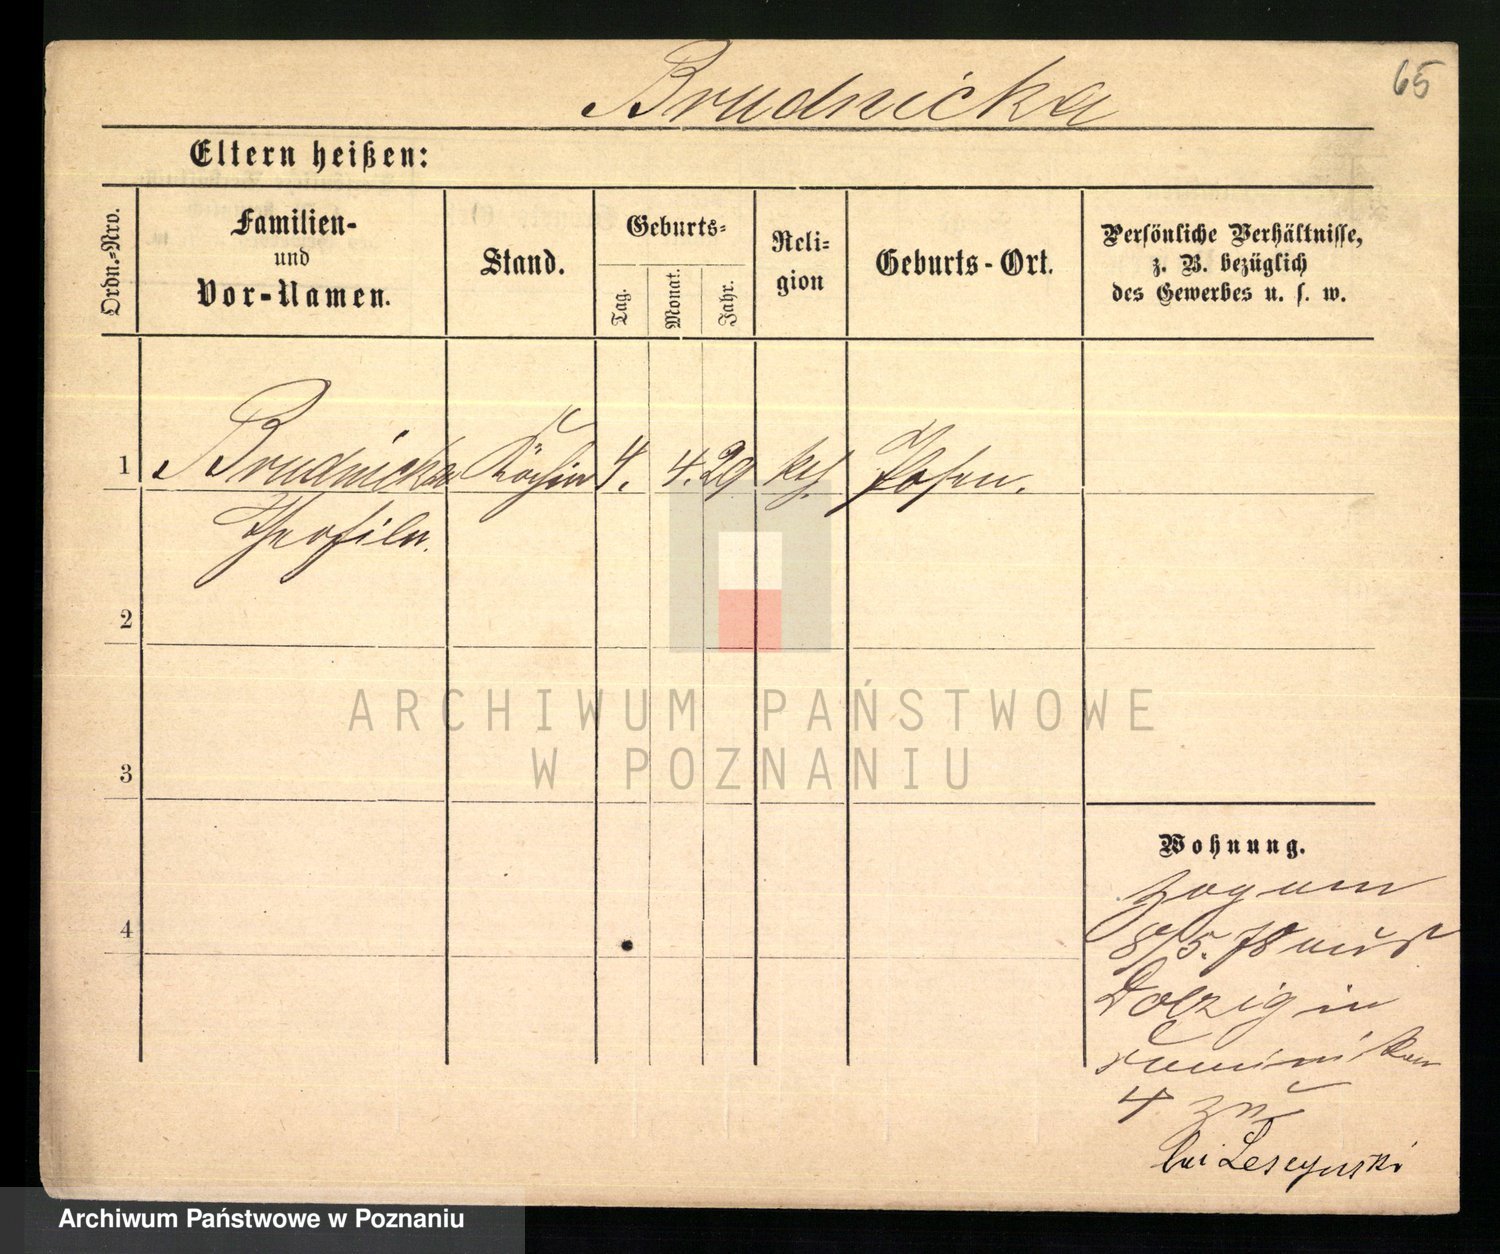 65
Brudnicka
Eltern heißen:
Ordn.-Nro.
Familien-
und
Vor-Namen.
Stand.
Geburts-
Tag.
Monat.
Jahr.
Reli-
gion
Geburts-Ort.
Persönliche Verhältnisse,
z. B. bezüglich
des Gewerbes u. s. w.
1 Brudnicka Köchin 4. 4. 29 kth. Posen.
Theofila.
2
3
4
Wohnung.
zog am
8/5. 78 aus
Dolzig in
Dominikan
4 zu
bei Lescynski
ARCHIWUM PAŃSTWOWE
W POZNANIU
Archiwum Państwowe w Poznaniu